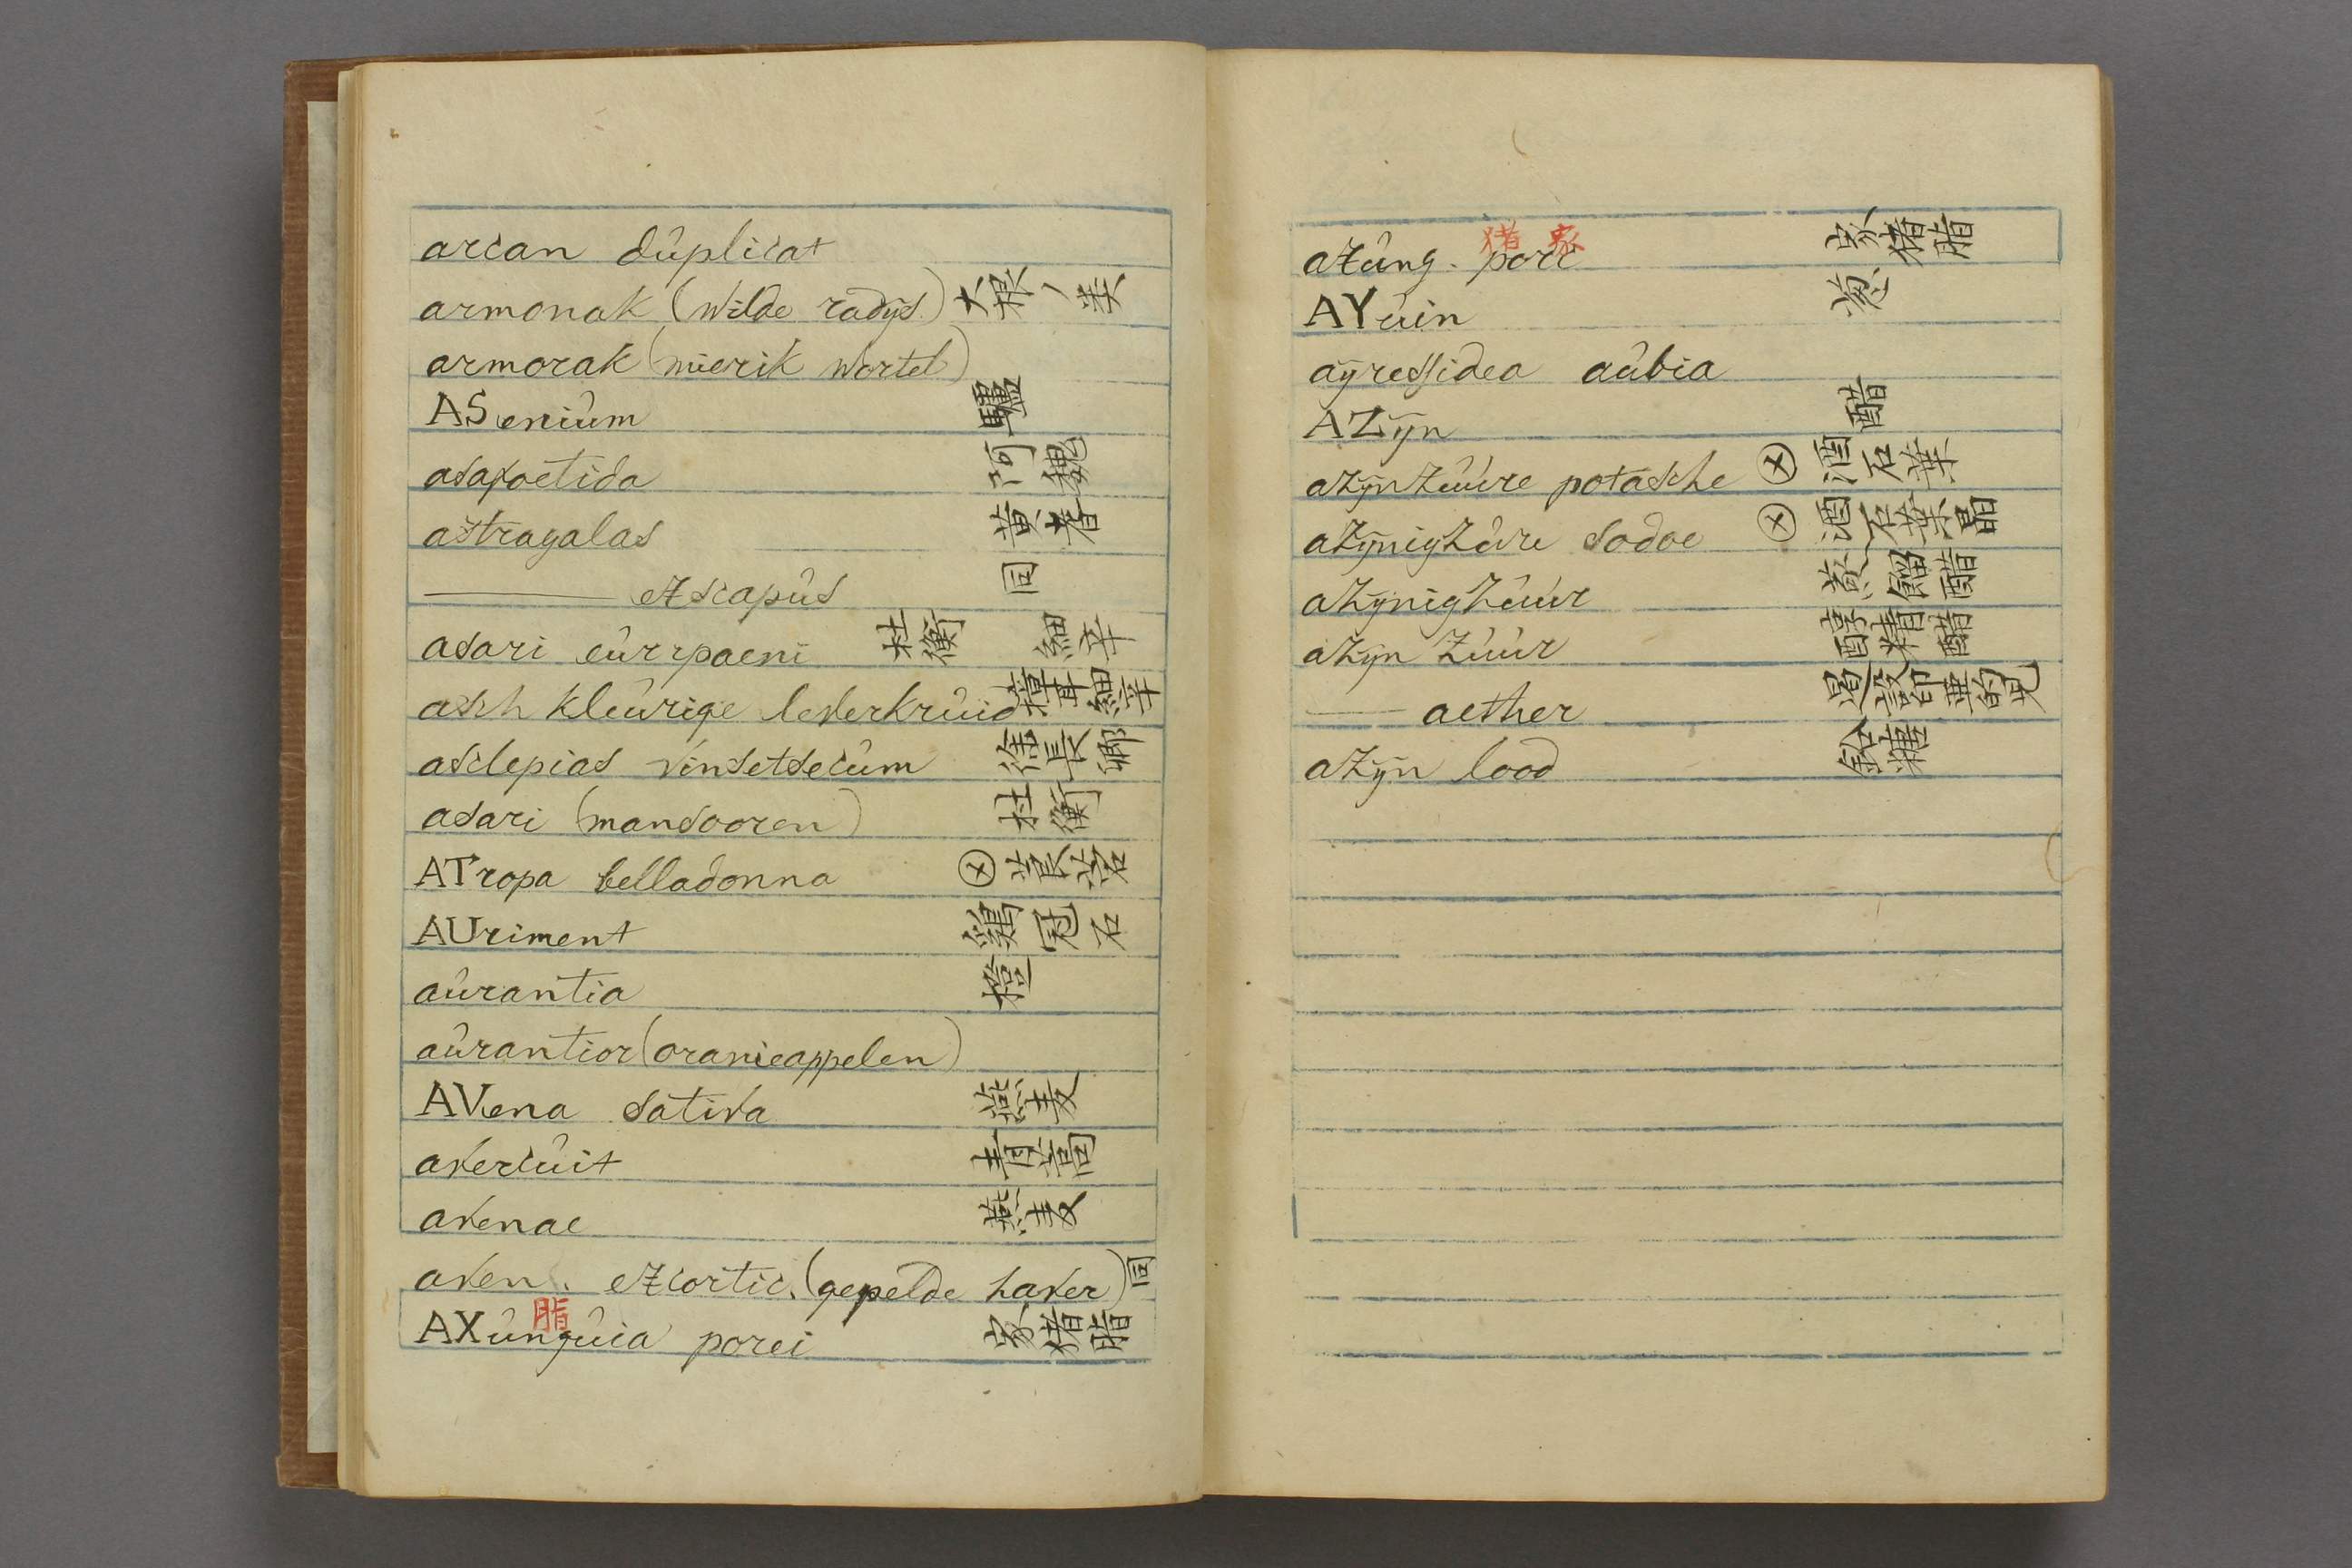 arcan dûplicat
armonak (wilde radys) 大根ノ類
armorak (mierik wortel)
ASeniûm 驢
asafoetida 阿魏
astragalas 黄耆
——— exscapûs 同
asari eûrrpaeni 杜衡 細辛
asch kleûrige leverkrûid 細辛
asclepias vinsetsecûm 徐長卿
asari (mansooren) 杜衡
ATropa belladonna ⊗ 莨菪
AUriment 鶏冠石
aûrantia 橙
aûrantior (oranieappelen)
AVena sativa 燕麦
avercûit 青蒿
avenae 燕麦
aven. excortic. (gepelde haver) 同
脂
AXûngûia porei 家猪脂
猪 家
axûng. porc 家猪脂
AYûin 葱
ayressidea aûbia
AZyn 醋
azynzûûre potasche ⊗ 酒石葉
azynigzûre sodoe ⊗ 酒石葉晶
azynigzûûr 蒸餾醋
azyn zûûr 醇精醋
—— aether
azyn lood 鉛糖